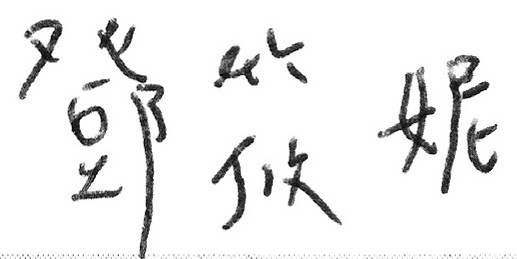 鄧筱妮